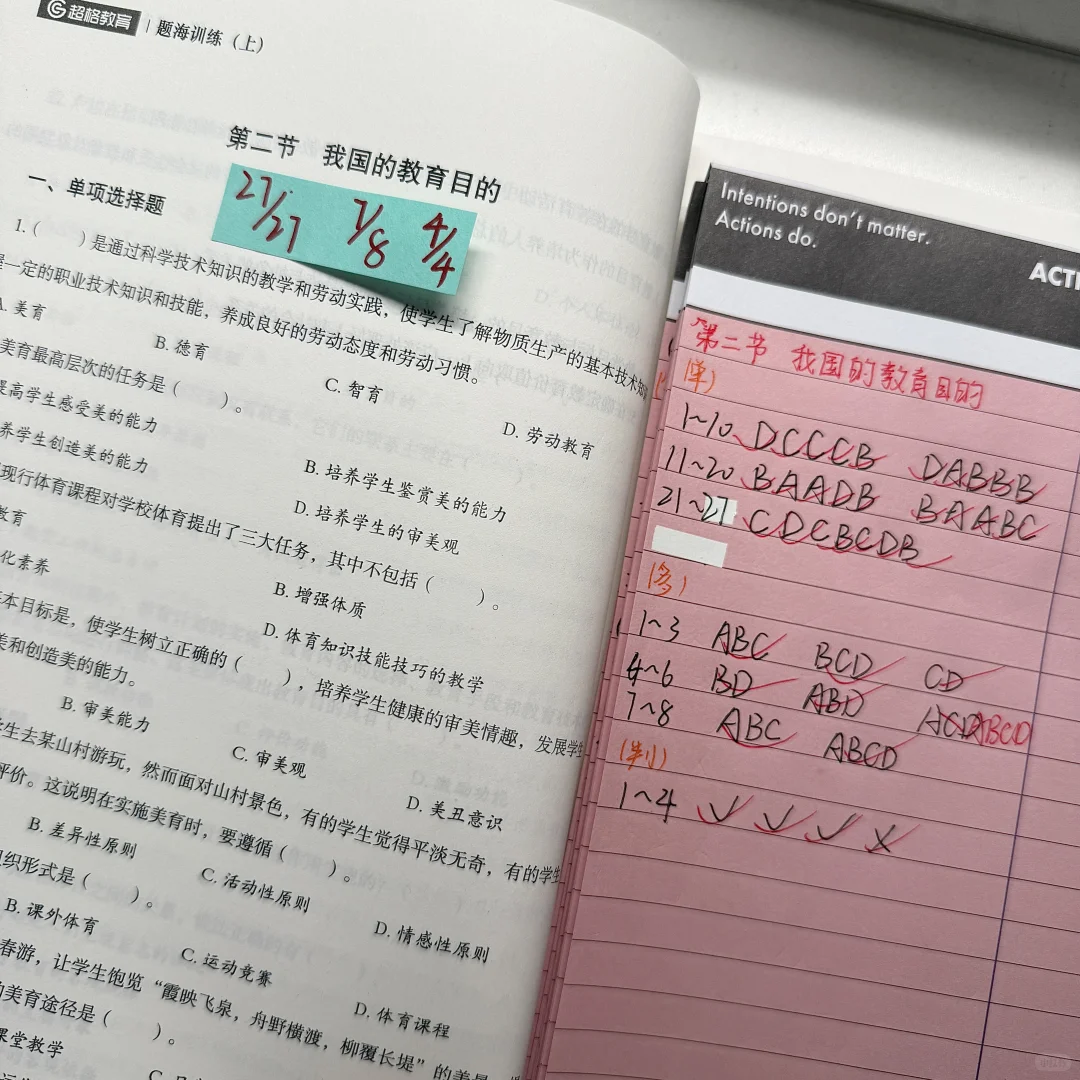 超格教育 题海训练（上）
第二节 我国的教育目的
27/27 7/8 4/4
一、单项选择题
1.（ ）是通过科学技术知识的教学和劳动实践，使学生了解物质生产的基本技术知
是一定的职业技术知识和技能，养成良好的劳动态度和劳动习惯。
A. 美育 B. 德育 C. 智育 D. 劳动教育
美育最高层次的任务是（ ）。
提高学生感受美的能力 B. 培养学生鉴赏美的能力
养学生创造美的能力 D. 培养学生的审美观
现行体育课程对学校体育提出了三大任务，其中不包括（ ）。
教育 B. 增强体质
化素养 D. 体育知识技能技巧的教学
本目标是，使学生树立正确的（ ），培养学生健康的审美情趣，发展学生
美和创造美的能力。
B. 审美能力 C. 审美观 D. 美丑意识
生去某山村游玩，然而面对山村景色，有的学生觉得平淡无奇，有的学生
评价。这说明在实施美育时，要遵循（ ）。
B. 差异性原则 C. 活动性原则 D. 情感性原则
组织形式是（ ）。
B. 课外体育 C. 运动竞赛 D. 体育课程
春游，让学生饱览“霞映飞泉，舟野横渡，柳覆长堤”的美景
的美育途径是（ ）。
课堂教学
Intentions don't matter.
Actions do.
ACTI
第二节 我国的教育目的
（单）
1~10 DCCCB DABBB
11~20 BAADB BAABC
21~27 CDCBCDB
（多）
1~3 ABC BCD CD
4~6 BD ABD ACD ABCD
7~8 ABC ABCD
（判）
1~4 ✓ ✓ ✓ ×